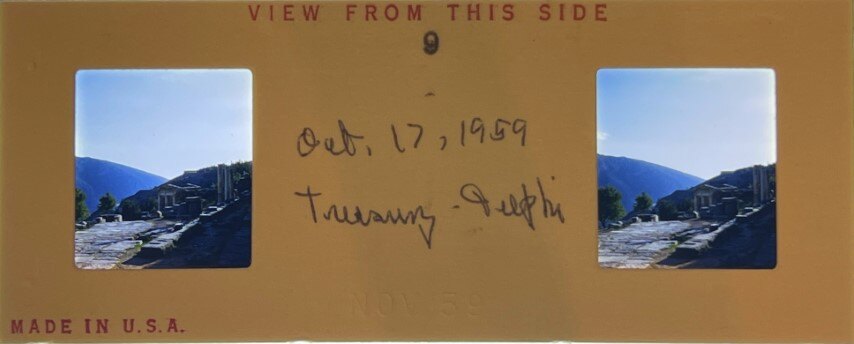 VIEW FROM THIS SIDE
9
Oct. 17, 1959
Treasury - Delphi
NOV 59
MADE IN U.S.A.